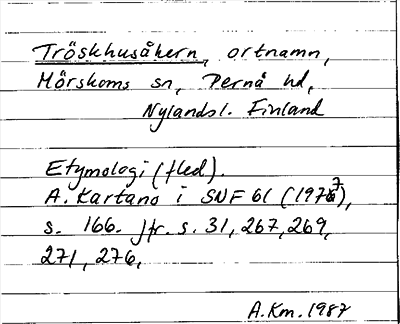 Tröskhusåkern, ortnamn,
Mörskoms sn, Pernå hd,
Nylandsl. Finland
Etymologi (fled).
A. Kartano i SNF 61 (1977),
s. 166. Jfr. s. 31, 267, 269,
271, 276,
A.Km. 1987